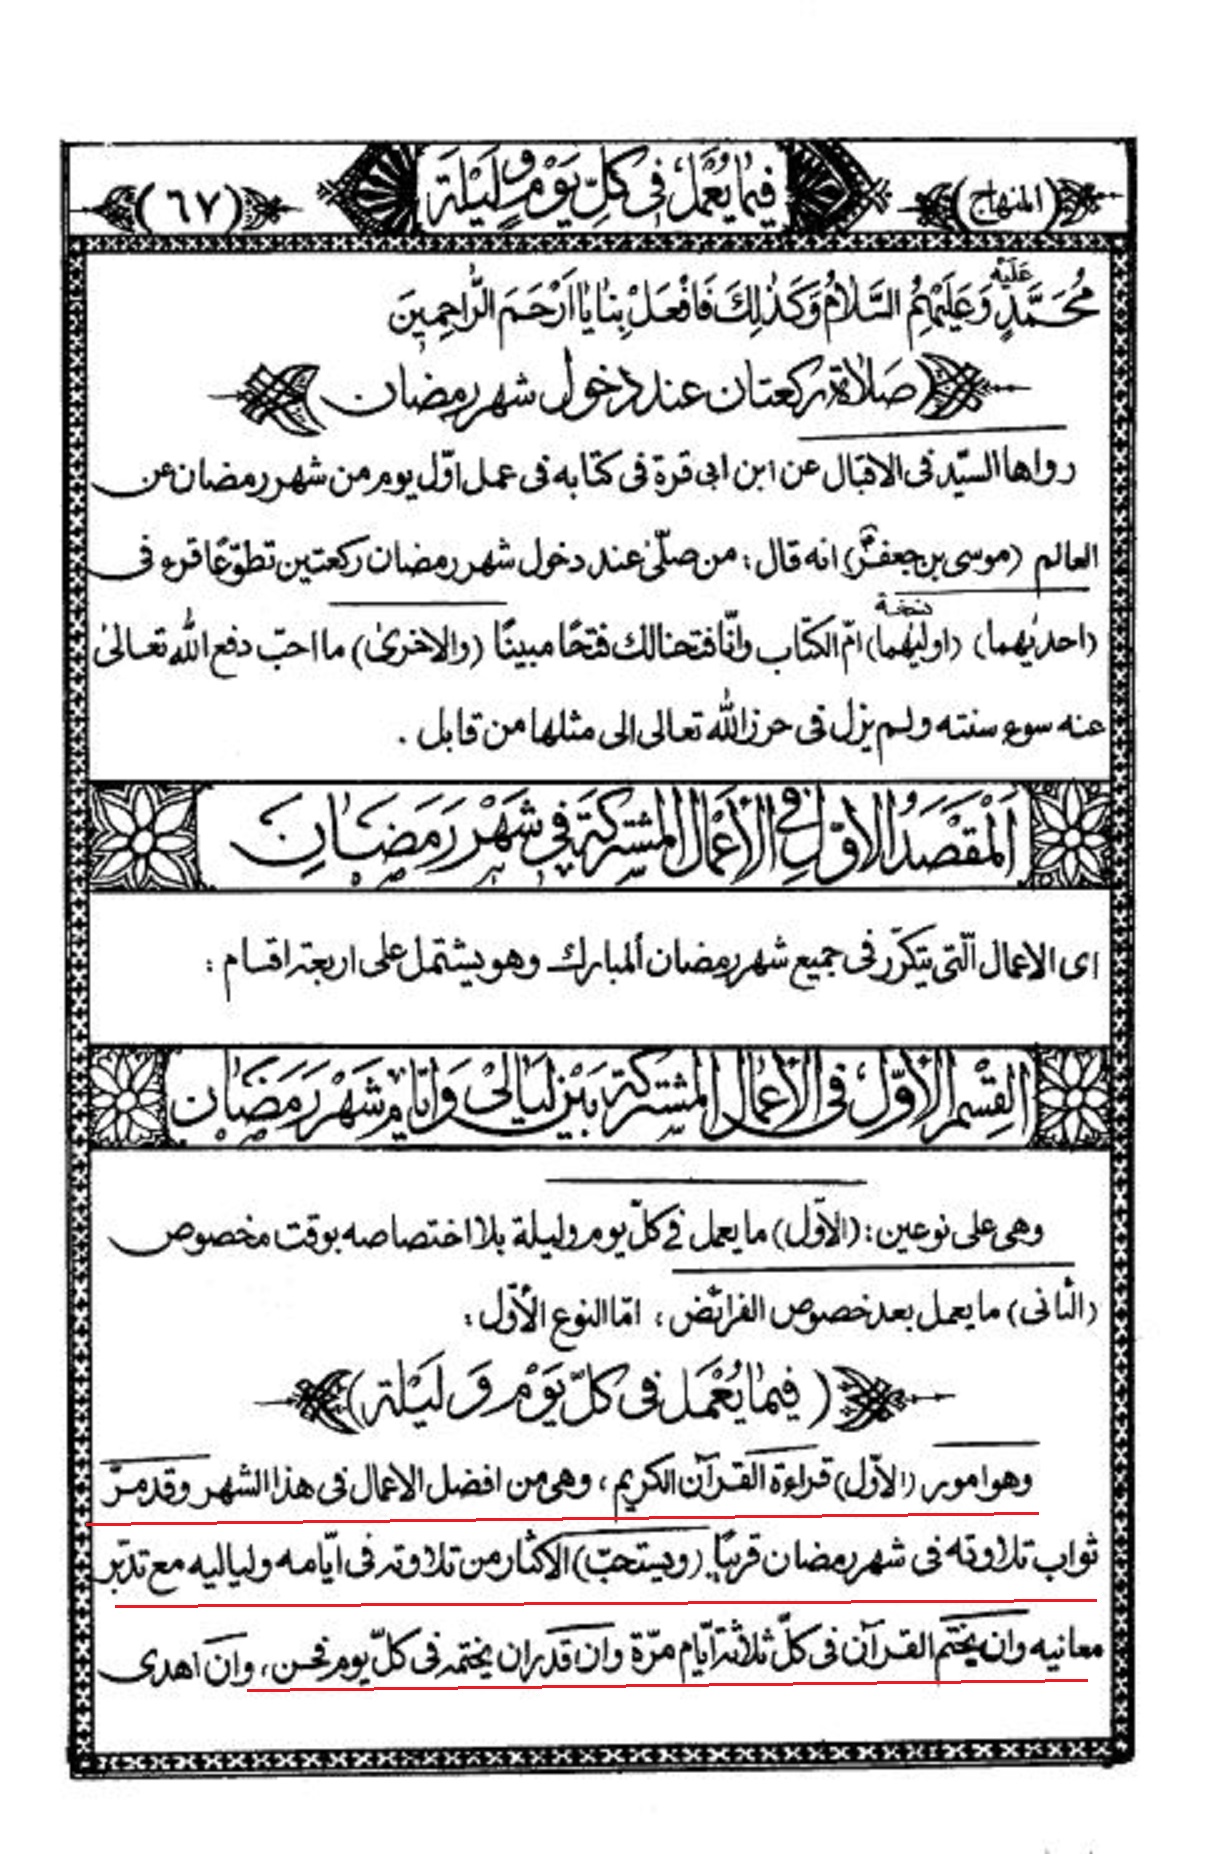 (المنهاج) فيما يُعْمَلُ فى كلِّ يَوْمٍ و لَيْلَة (٦٧)
مُحَمَّدٍ عَلَيْهِ وَعَلَيْهِمُ السَّلامُ وَكَذلِكَ فَافْعَلْ بِنا يا اَرْحَمَ الرّاحِمِينَ
(صَلاة ركعتان عند دخول شهر رمضان)
رواها السيّد فى الاقبال عن ابن ابى قرة فى كتابه فى عمل اوّل يوم من شهر رمضان عن
العالم (موسى بن جعفر) انه قال: من صلّى عند دخول شهر رمضان ركعتين تطوّعًا قرء فى
(احديهما) (اوليهما) نسخة امّ الكتاب وانّا فتحنا لك فتحًا مبينًا (والاخرى) ما احبّ دفع الله تعالى
عنه سوء سنته ولم يزل فى حرز الله تعالى الى مثلها من قابل .
اَلْمَقْصَدُ الاوّل فِى الاَعْمال المشتركة في شَهْر رَمَضانِ
اى الاعمال الّتى يتكرّر فى جميع شهر رمضان ألمبارك وهو يشتمل على اربعة اقسام :
القِسْم الاَوّل فى الاَعْمال المشتركة بَيْن لَيالى وَ ايّام شَهْر رَمَضان
وهى على نوعين: (الاوّل) ما يعمل في كلّ يوم وليلة بلا اختصاصه بوقت مخصوص
(الثانى) ما يعمل بعد خصوص الفرائض، امّا النوع الأوّل:
(فيما يُعْمَل فى كلّ يَوْم وَ لَيْلة)
وهو امور (الاوّل) قراءة القرآن الكريم، وهى من افضل الاعمال فى هذا الشهر وقد مرّ
ثواب تلاوته فى شهر رمضان قريبًا (ويستحبّ) الاكثار من تلاوته فى ايّامه ولياليه مع تدبّر
معانيه وان يختم القرآن فى كلّ ثلاثة ايّام مرّة وان قدر ان يختمه فى كلّ يوم فحسن، وان اهدى